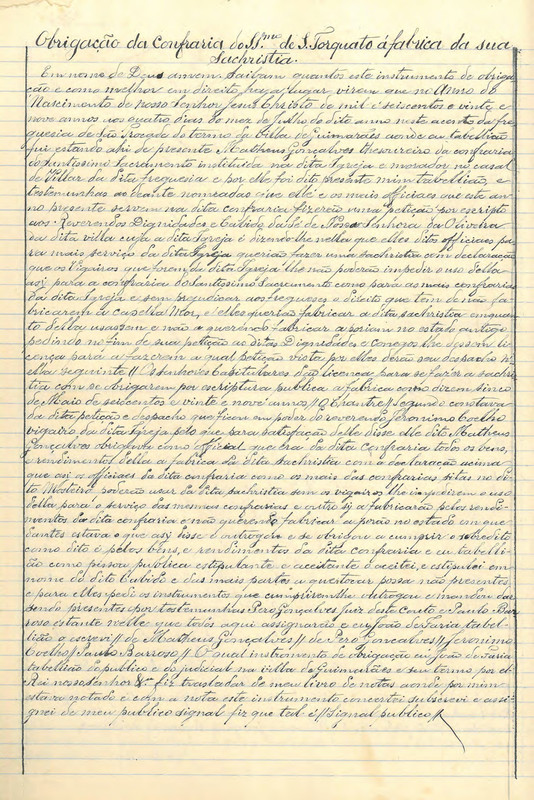 Obrigação da Confraria do SS.mo de S. Torquato á fabrica da sua
Sachristia.
Em nome de Deus amem. Saibam quantos este instrumento de obriga-
ção e como melhor em direito haja lugar, virem que no Anno do
Nascimento de nosso Senhor Jesus Christo de mil e seiscentos e vinte e
nove annos aos quatro dias do mez de Julho do dito anno neste couto da fre-
guesia de São Torcade do termo da Villa de Guimarães aonde eu tabellião
fui estando ahi de presente Matheus Gonçalves thesoureiro da confraria
do Santissimo Sacramento instituida na dita Igreja e morador no casal
de Villar da dita freguesia e por elle foi dito presente mim tabellião, e
testemunhas ao deante nomeadas que elle e os mais officiaes que este an-
no presente servem na dita confraria fizerão uma petição por escripto
aos Reverendos Dignidades e Cabido da Sé de Nossa Senhora da Oliveira
da dita villa cuja a dita Igreja é dizendo-lhe nella que elles ditos officiaes pa-
ra mais serviço da dita Igreja querião fazer uma sachristia com declaração
que os Vigairos que forem da dita Igreja lhe não poderão impedir o uso della
asi para a confraria do Santissimo Sacramento como para as mais confrarias
da dita Igreja e sem prejudicar aos freguezes o direito que tem de não fa-
bricarem a capella Mor, e elles querião fabricar a dita sachristia emquan-
to della usassem e não a querendo fabricar a porião no estado antigo
pedindo no fim de sua petição ao ditas Dignidades e conegos lhe dessem li-
cença para a fazerem a qual petição vista por elles derão seu despacho n'-
ella seguinte // Os senhores Capitulares dão licença para se fazer a sachris-
tia com se obrigarem por escriptura publica a fabrica como dizem sinco
de Maio de seiscentos e vinte e nove annos // O Chantre // Segundo constava
da dita petição e despacho que ficou em poder do reverendo Jeronimo Coelho
vigairo da dita Igreja pelo que para satisfação delle disse elle dito Matheus
Gonçalves obrigava como official que era da dita confraria todos os bens,
e rendimentos della a fabrica da dita sachristia com a declaração acima
que asi os officiaes da dita confraria como os mais das confrarias sitas no di-
to Mosteiro poderão usar da dita sachristia sem os vigairos lhe impedirem o uso
della para o serviço das mesmas confrarias e outro si a fabricarão pelos rendi-
mentos da dita confraria e não querendo fabricar a porão no estado em que
d'antes estava o que asi disse e outrogou e se obrigou a cumprir o sobredito
como dito é pelos bens, e rendimentos da dita confraria e eu tabelli-
ão como pessoa publica estipulante e aceitante o aceitei, e estipulei em
nome do dito Cabido e das mais partes a que tocar possa não presentes,
e para elles pedi os instrumentos que cumprirem lhe outrogou e mandou dar
sendo presentes por testemunhas Pero Gonçalves Juiz deste Couto e Paulo Bar-
roso estante nelle que todos aqui assignarão e eu João de Faria tabel-
lião o escrevi // de Matheus Gonçalves // de Pero Gonçalves // Jeronimo
Coelho // Paulo Barroso // O qual instrumento de obrigação eu João de Faria
tabellião do publico e do judicial na villa de Guimarães e seu termo por el
Rei nosso senhor &ª fiz trasladar de meu livro de notas aonde por mim
estava notado e com a nota este instrumento concertei subscrevi e assi-
gnei de meu publico signal fiz que tal é // Signal publico //